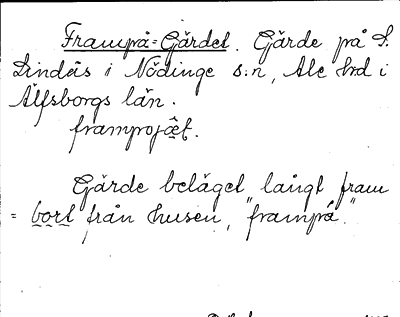 Frampå=Gärdet. Gärde på S.
Lindås i Nödinge s:n, Ale hrd i
Älfsborgs län.
Gärde beläget långt fram
= bort från husen, "frampå".